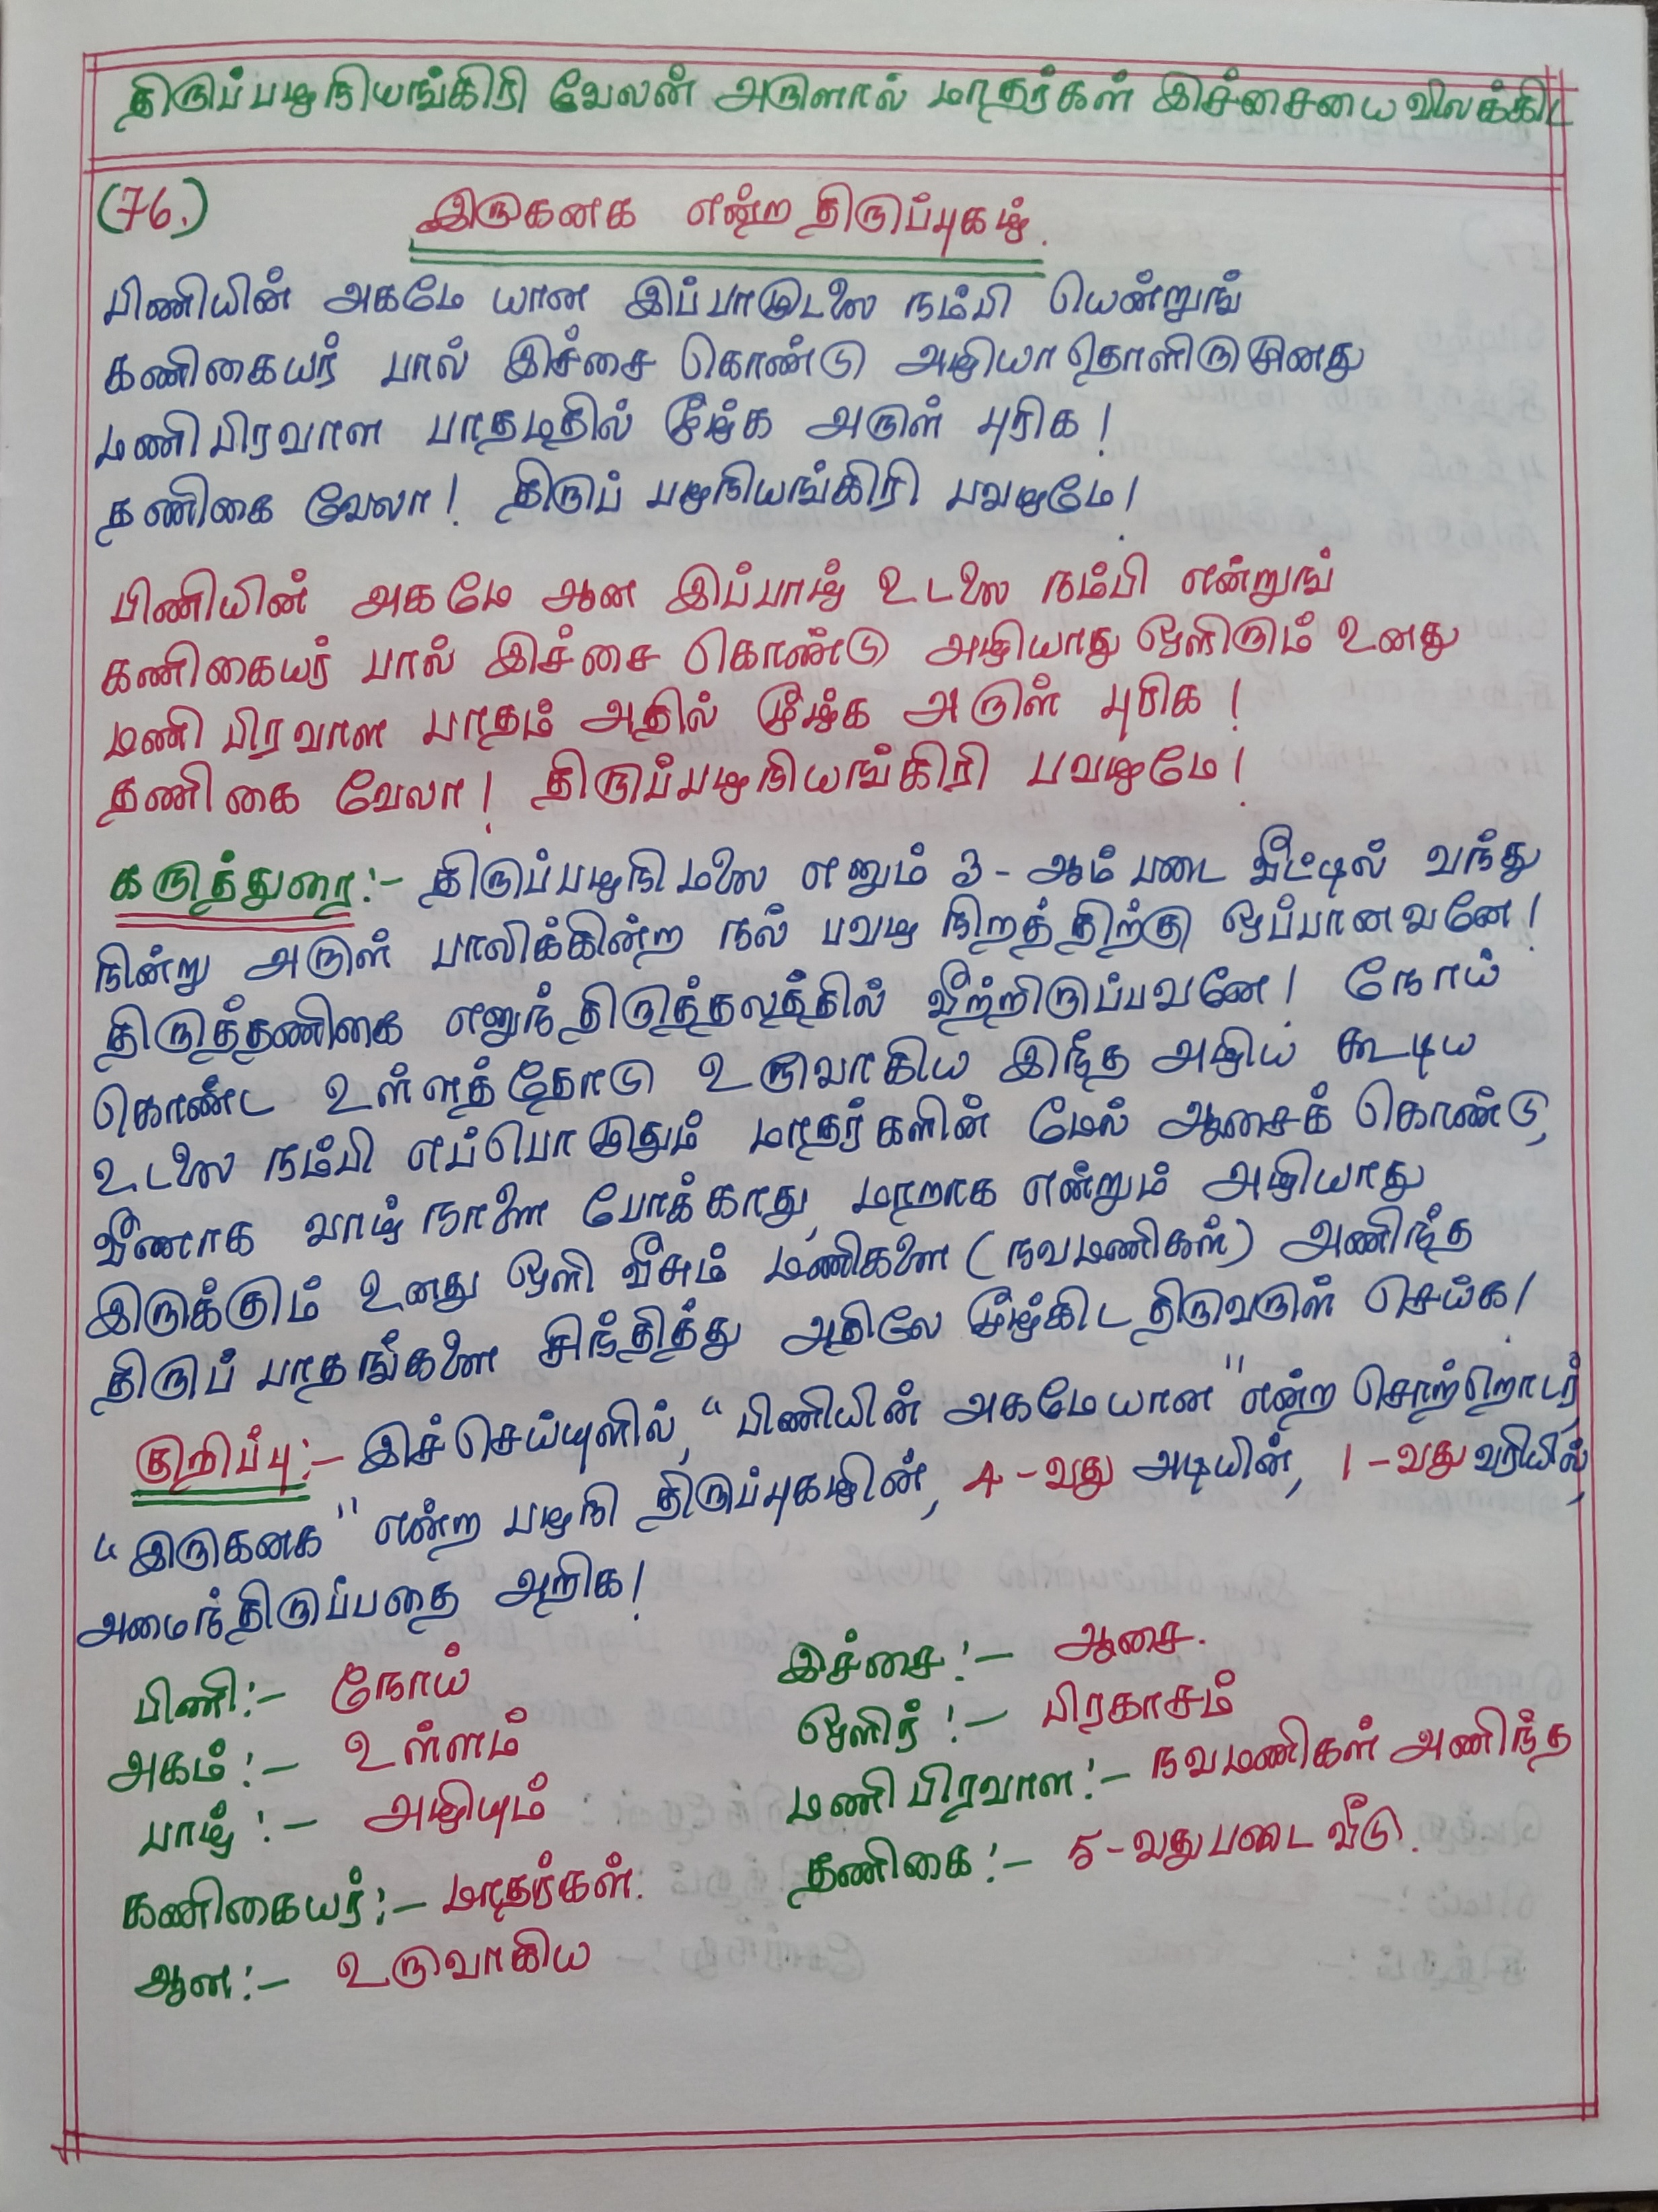 திருப்பழநியங்கிரி வேலன் அருளால் மாதர்கள் இச்சையை விலக்கிட
(76.) இருகனக என்ற திருப்புகழ்.
பிணியின் அகமே யான இப்பாழுடலை நம்பி யென்றுங்
கணிகையர் பால் இச்சை கொண்டு அழியாதொளிருமுனது
மணி பிரவாள பாதமதில் மூழ்க அருள் புரிக!
தணிகை வேலா! திருப் பழநியங்கிரி பவழமே!
பிணியின் அகமே ஆன இப்பாழ் உடலை நம்பி என்றுங்
கணிகையர் பால் இச்சை கொண்டு அழியாது ஒளிரும் உனது
மணி பிரவாள பாதம் அதில் மூழ்க அருள் புரிக!
தணிகை வேலா! திருப்பழநியங்கிரி பவழமே!
கருத்துரை:- திருப்பழநி மலை எனும் 3-ஆம் படை வீட்டில் வந்து
நின்று அருள் பாலிக்கின்ற நல் பவழ நிறத்திற்கு ஒப்பானவனே!
திருத்தணிகை எனுந் திருத்தலத்தில் வீற்றிருப்பவனே! நோய்
கொண்ட உள்ளத்தோடு உருவாகிய இந்த அழிய கூடிய
உடலை நம்பி எப்பொழுதும் மாதர்களின் மேல் ஆசைக் கொண்டு,
வீணாக வாழ்நாளை போக்காது, மாறாக என்றும் அழியாது
இருக்கும் உனது ஒளி வீசும் மணிகளை (நவமணிகள்) அணிந்த
திருப் பாதங்களை சிந்தித்து அதிலே மூழ்கிட திருவருள் செய்க!
குறிப்பு:- இச் செய்யுளில், "பிணியின் அகமேயான" என்ற சொற்றொடர்,
"இருகனக" என்ற பழநி திருப்புகழின், 4-வது அடியின், 1-வது வரியில்,
அமைந்திருப்பதை அறிக!
பிணி:- நோய் இச்சை:- ஆசை.
அகம்:- உள்ளம் ஒளிர்:- பிரகாசம்
பாழ்:- அழியும் மணி பிரவாள:- நவமணிகள் அணிந்த
கணிகையர்:- மாதர்கள். தணிகை:- 5-வது படை வீடு.
ஆன:- உருவாகிய